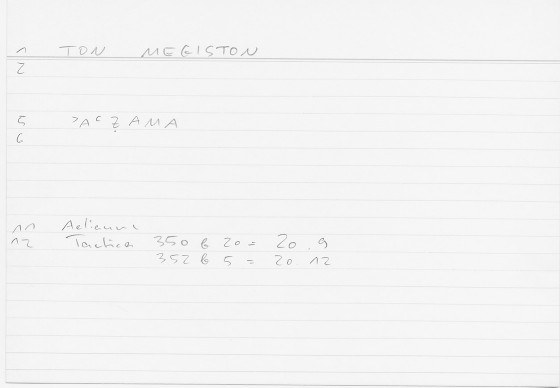 1 TON MEGISTON
2
5 ʾAʿẒAMA
6
11 Aelianus
12 Tactica 350 b 20 = 20.9
352 b 5 = 20 12